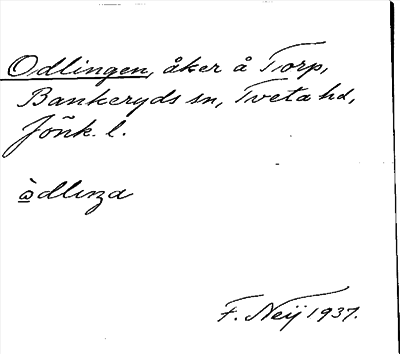 Odlingen, åker å Torp,
Bankeryds sn, Tveta hd,
Jönk. l.
òdlɩŋa
F. Neij 1937.